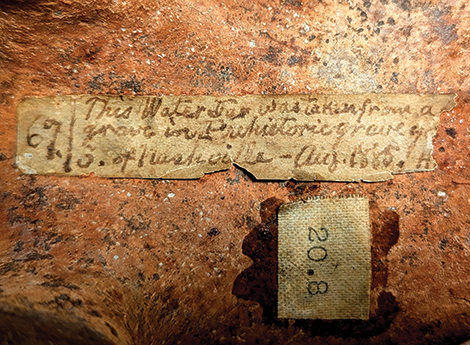 67.
This Water Jar was taken from a
grave in Prehistoric grave y
S. of Nashville - Aug. 1885.
20.8